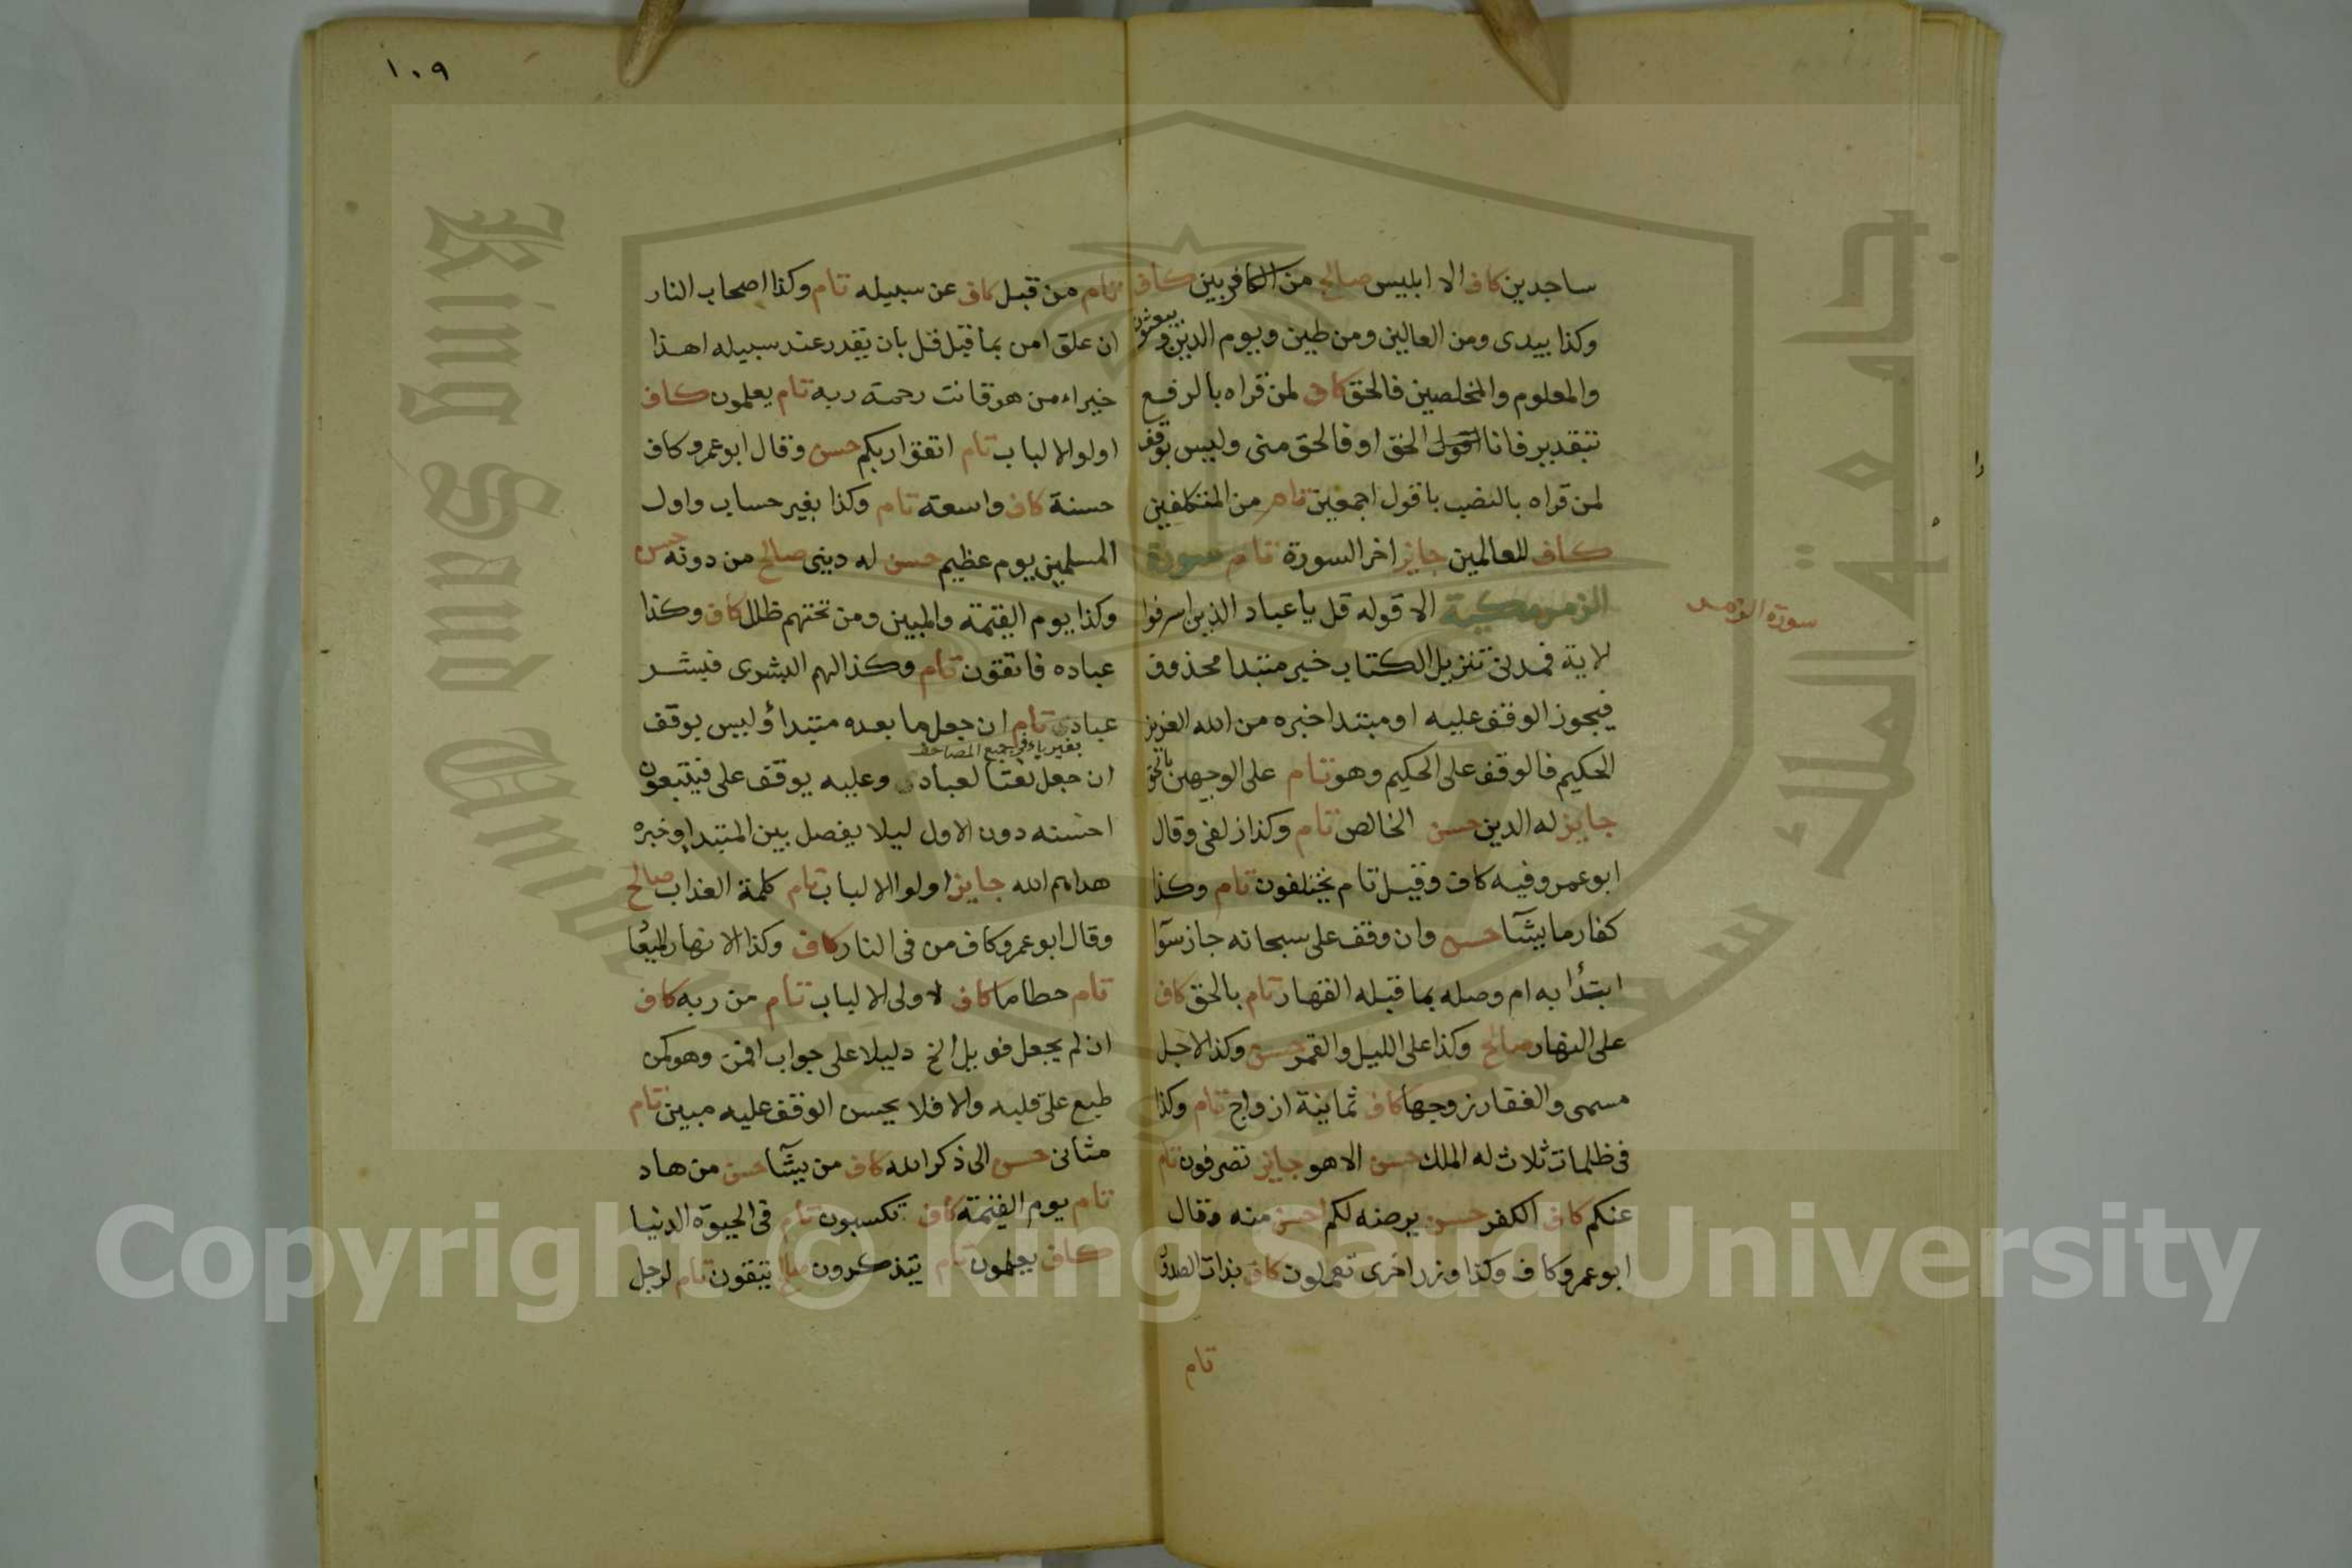 ساجدين كاف الا ابليس صالح من الكافرين كاف
وكذا بيدى ومن العالين ومن طين ويوم الدين ويبعثون
والمعلوم والمخلصين فالحق كاف لمن قراه بالرفع
بتقدير فانا اقول الحق او فالحق منى وليس بوقف
لمن قراه بالنصب باقول اجمعين تام من المتكلفين
كاف للعالمين جايز اخر السورة تام سورة
الزمر مكية الا قوله قل يا عباد الذين اسرفوا
سورة الزمر
لاية فمدنى تنزيل الكتاب خبر مبتدا محذوف
فيجوز الوقف عليه او مبتدا خبره من الله العزيز
الحكيم فالوقف على الحكيم وهو تام على الوجهين بالحق
جايز له الدين حسن الخالص تام وكذا زلفى وقال
ابو عمرو فيه كاف وقيل تام يختلفون تام وكذا
كفار ما يشآ حسن وان وقف على سبحانه جاز سوآ
ابتدأ به ام وصله بما قبله القهار تام بالحق كاف
على النهار صالح وكذا على الليل والقمر حسن وكذا لاجل
مسمى والغفار زوجها كاف ثمانية ازواج تام وكذا
فى ظلمات ثلاث له الملك حسن الا هو جايز تصرفون تام
عنكم كاف الكفر حسن يرضه لكم احسن منه وقال
ابو عمرو كاف وكذا وزر اخرى تعملون كاف بذات الصدور
تام
١٠٩
تام من قبل كاف عن سبيله تام وكذا اصحاب النار
ان علق امن بما قبل قل بان يقدر عند سبيله اهذا
خير اء من هو قانت رحمة ربه تام يعلمون كاف
اولوا الالباب تام اتقوا ربكم حسن وقال ابو عمرو كاف
حسنة كاف واسعة تام وكذا بغير حساب واول
المسلمين يوم عظيم حسن له دينى صالح من دونه حسن
وكذا يوم القيمة والمبين ومن تحتهم ظلل كاف وكذا
عباده فاتقون تام وكذا لهم البشرى فبشر
عبادى تام ان جعل ما بعده مبتدا وليس بوقف
بغير ياء فى جميع المصاحف
ان جعل نعتا لعبادى وعليه يوقف على فيتبعون
احسنه دون الاول ليلا يفصل بين المبتدا وخبره
هداهم الله جايز اولوا الالباب تام كلمة العذاب صالح
وقال ابو عمرو كاف من فى النار كاف وكذا الانهار الميعاد
تام حطاما كاف لاولى الالباب تام من ربه كاف
ان لم يجعل فويل الخ دليلا على جواب افمن وهو كمن
طبع على قلبه والا فلا يحسن الوقف عليه مبين تام
مثانى حسن الى ذكر الله كاف من يشآ حسن من هاد
تام يوم القيمة كاف تكسبون تام فى الحيوة الدنيا
كاف يعلمون تام يتذكرون صالح يتقون تام لرجل
King Saud University
جامعة الملك سعود
Copyright © King Saud University